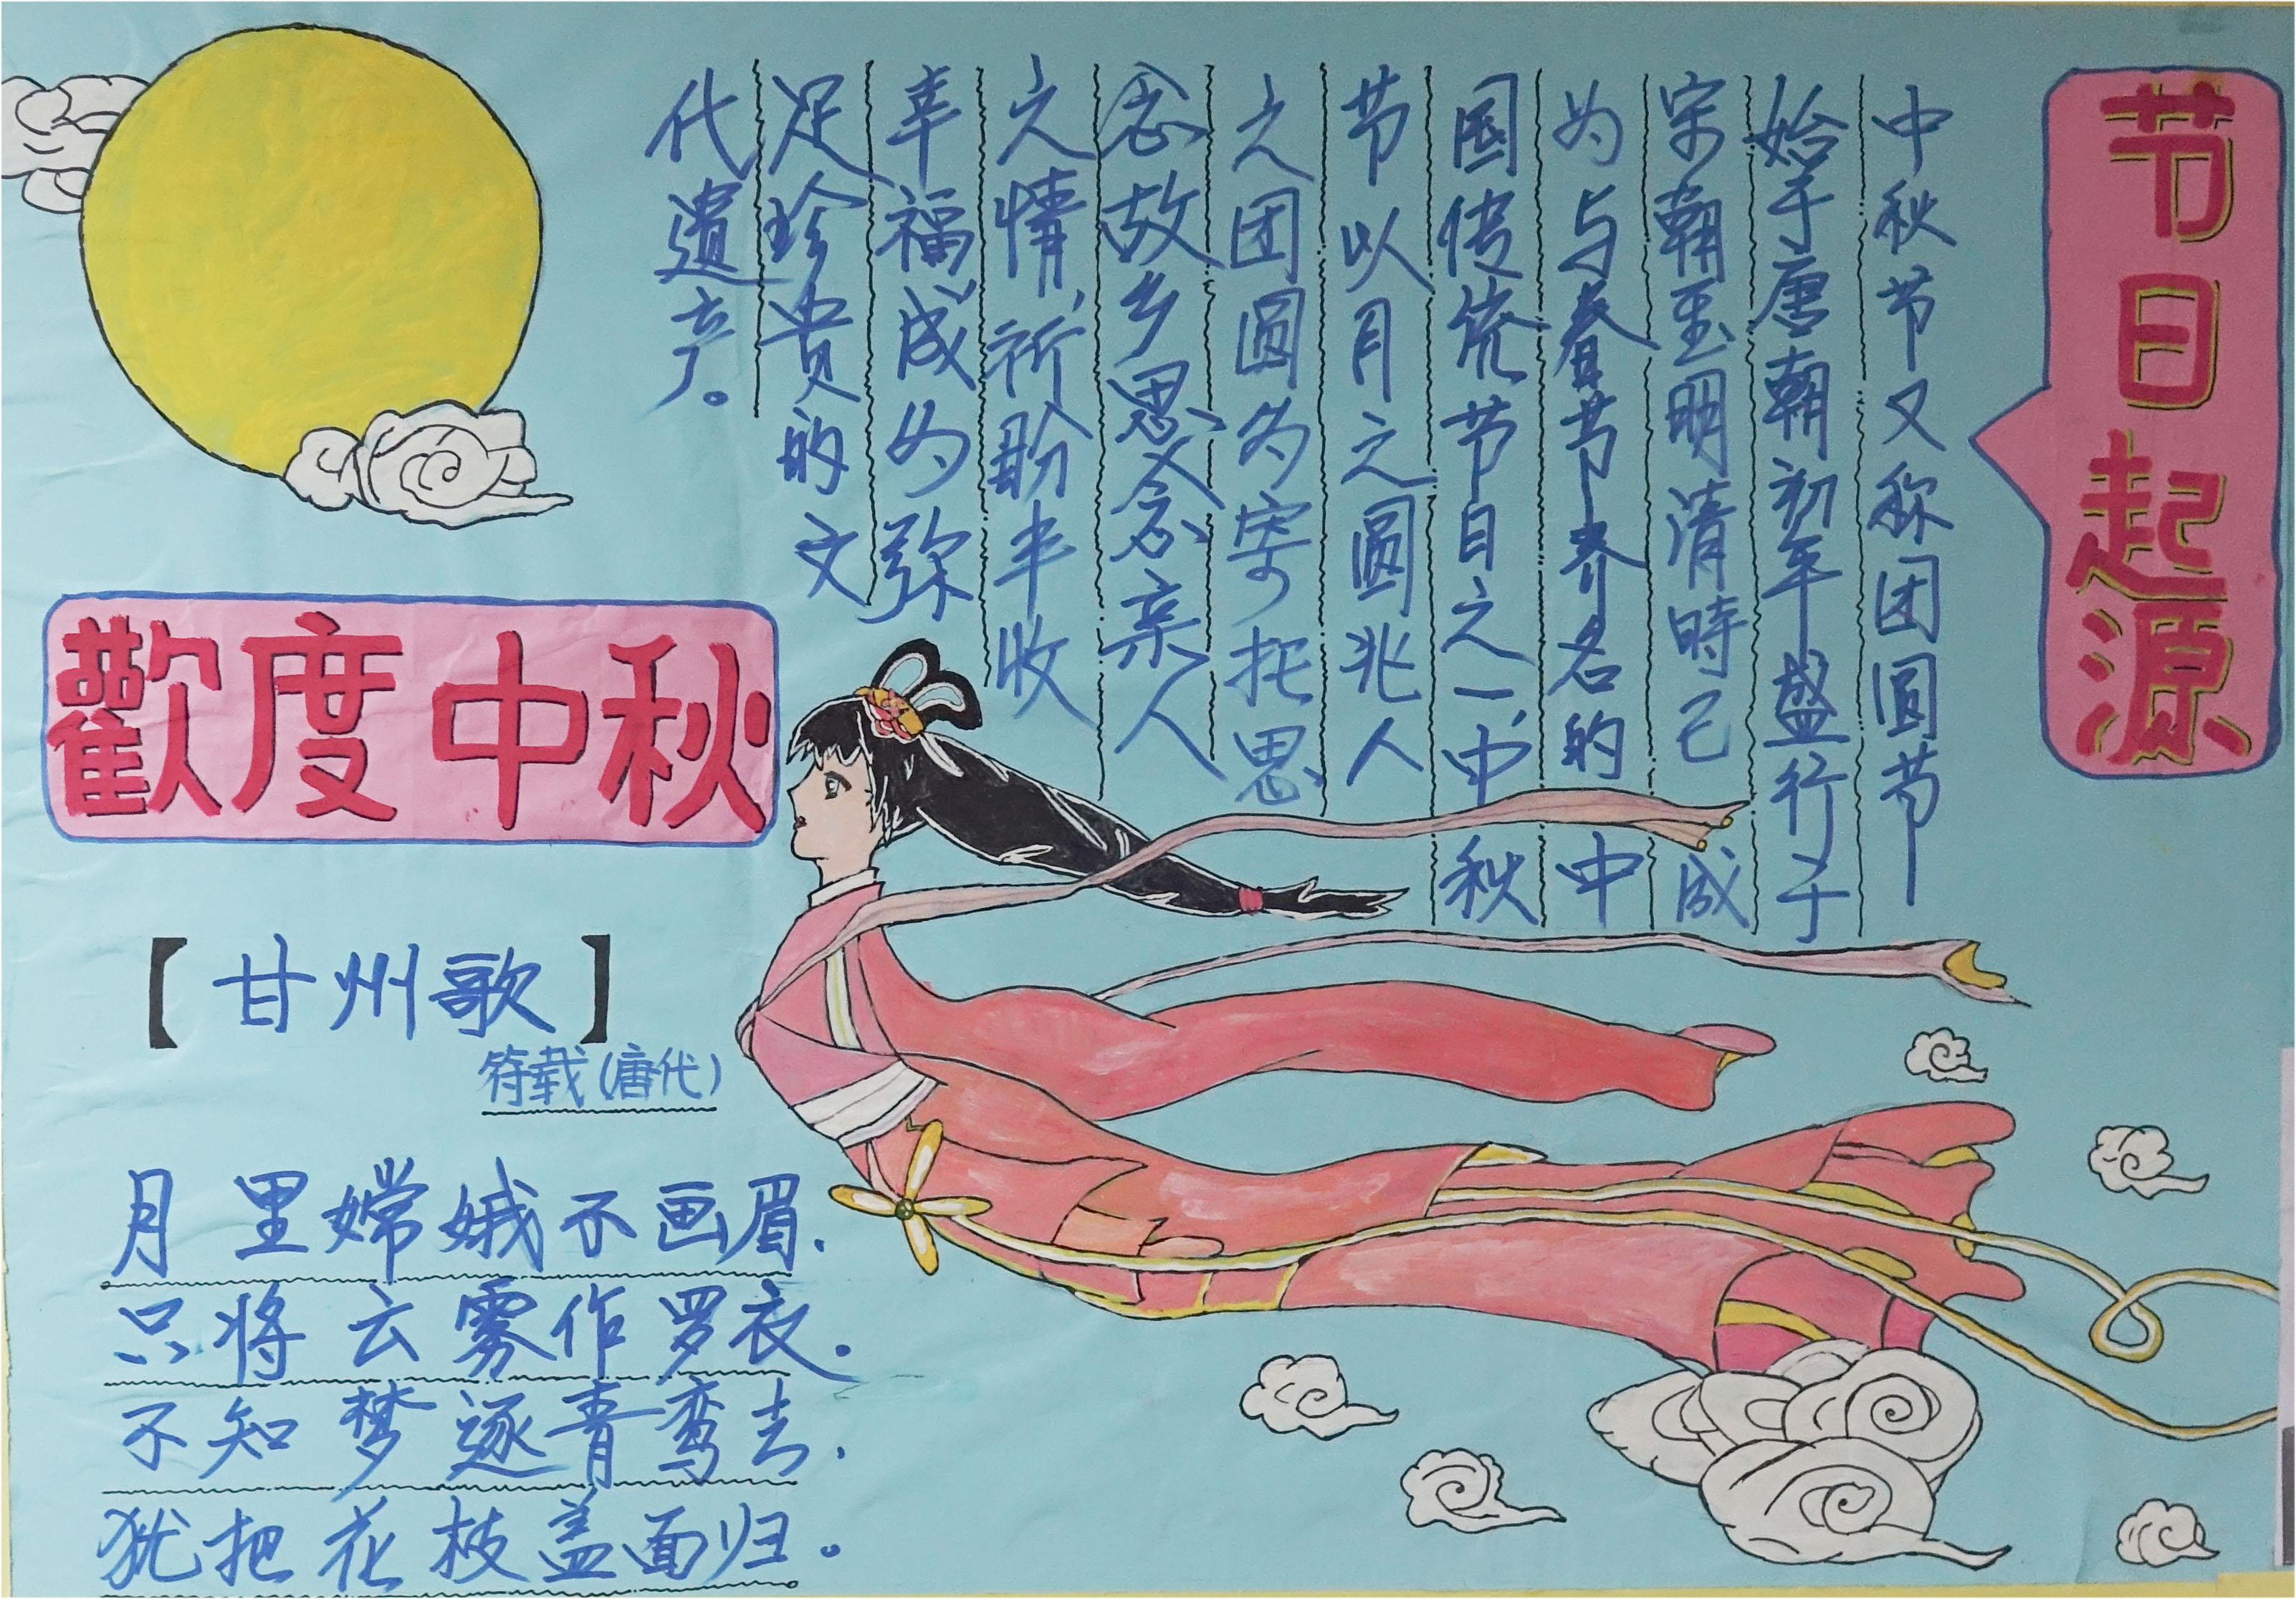 节日起源
中秋节又称团圆节
始于唐朝初年盛行于
宋朝至明清時已成
为与春节齐名的中
国传统节日之一,中秋
节以月之圆兆人
之团圆为寄托思
念故乡思念亲人
之情,祈盼丰收
幸福,成为弥
足珍贵的文
代遗产。
歡度中秋
【甘州歌】
符载(唐代)
月里嫦娥不画眉.
只将云雾作罗衣.
不知梦逐青鸾去.
犹把花枝盖面归。